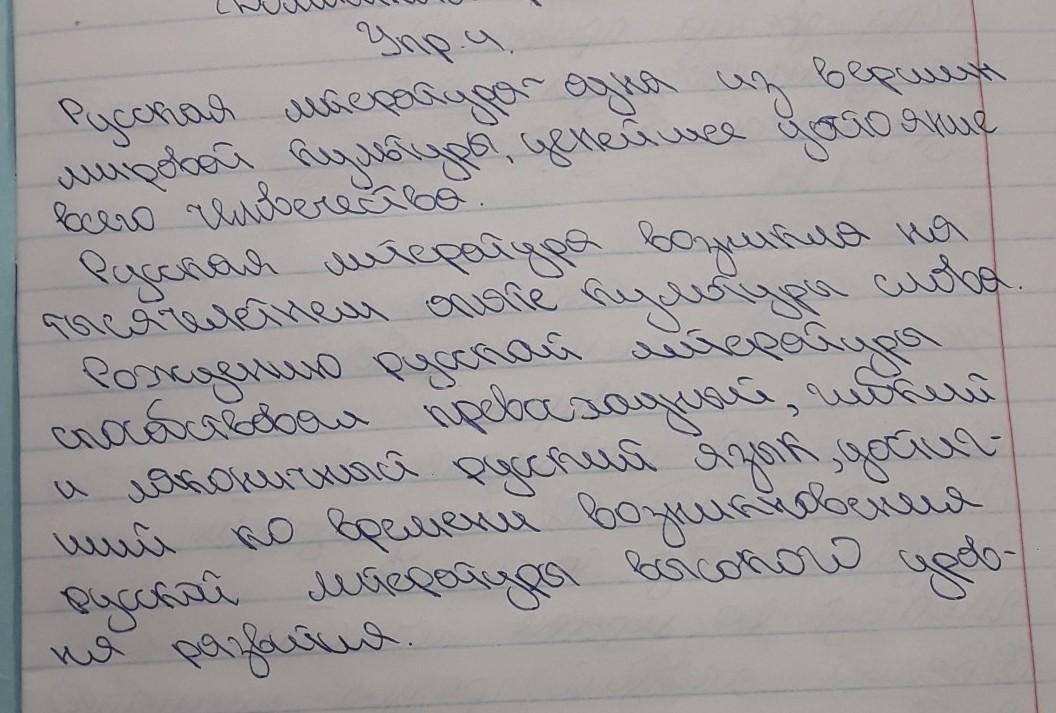 Упр.4.
Русская литература- одна из вершин
мировой культуры, ценейшее достояние
всего человечества.
Русская литература возникла на
тысячелетнем опыте культуры слова.
Рождению русской литературы
способствовал превосходный, гибкий
и лаконичный русский язык, достиг-
ший ко времени возникновения
русской литературы высокого уров-
ня развития.